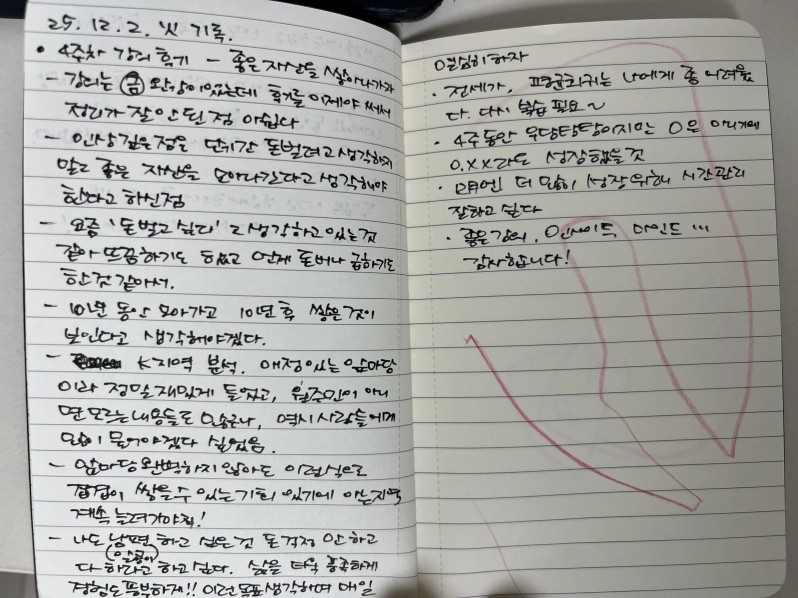 25. 12. 2. 의 기록.
• 4주차 강의 후기 - 좋은 자산을 쌓아나가자
- 강의는 금 완강이었는데 후기를 이제야 써서
정리가 잘 안된 점 아쉽다
- 인상깊은점은 단기간 돈벌려고 생각하지
말고 좋은 자산을 모아나간다고 생각해야
한다고 하신점
- 요즘 '돈벌고싶다'고 생각하고 있는것
같아 뜨끔하기도 하였고 언제 돈버나 급하기도
한것 같아서.
- 10년 동안 모아가고 10년후 쌓은것이
보인다고 생각해야겠다.
- K지역 분석. 애정있는 앞마당
이라 정말 재밌게 들었고, 원주민이 아니
면 모르는 내용들도 나오구나, 역시 사람들에게
많이 물어야겠다 싶었음.
- 앞마당 완벽하지 않아도 이런식으로
접점이 쌓을수 있는 기회 있기에 아는지역
계속 늘려가야지!
- 나도 남편 하고 싶은것 돈걱정 안하고
(알콩이)
다 하라고 하고 싶다. 삶을 더욱 풍족하게
경험도 풍부하게!! 이런 목표 생각하며 매일
열심히하자
• 전세가, 평균회귀는 나에게 좀 어려웠
다. 다시 복습 필요~
• 4주동안 우당탕탕이지만 0은 아니기에
0.xx라도 성장했을것
• 12월엔 더 많이 성장위해 시간관리
잘하고 싶다
• 좋은강의, 인사이트, 마인드 ...
감사합니다!